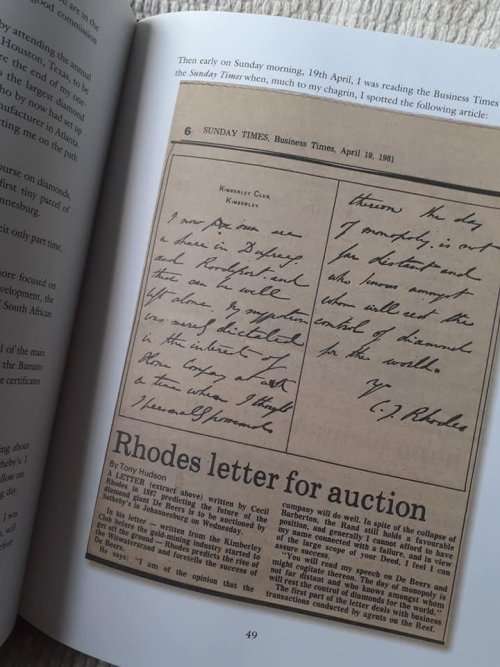 you are in the
good commission
by attending the annual
Houston, Texas, to be
re the end of my one-
the largest diamond
ho by now had set up
nufacturer in Atlanta.
rting me on the path
ourse on diamonds,
first tiny parcel of
nnesburg.
eit only part time,
ore focused on
evelopment, the
f South African
l of the man
the Barnato
e certificates
ng about
theby's I
llow on
ng day.
I was
Then early on Sunday morning, 19th April, I was reading the Business Times
the Sunday Times when, much to my chagrin, I spotted the following article:
6 SUNDAY TIMES, Business Times, April 19, 1981
KIMBERLEY CLUB,
KIMBERLEY
I now own
a share in
and Roodepoort and
that can be well
left alone. My suggestion
was merely dictated
in the interest of
Home Company at
a time when I thought
I personally
thereon the day
of monopoly is not
far distant and
who knows amongst
whom will rest the
control of diamonds
for the world.
yrs
C. J. Rhodes
Rhodes letter for auction
By Tony Hudson
A LETTER (extract above) written by Cecil
Rhodes in 1887 predicting the future of the
diamond giant De Beers is to be auctioned by
Sotheby's in Johannesburg on Wednesday.
In his letter — written from the Kimberley
Club before the gold-mining industry started to
get off the ground — Rhodes predicts the rise of
the Witwatersrand and foretells the success of
De Beers.
He says: "I am of the opinion that the
company will do well. In spite of the collapse of
Barberton, the Rand still holds a favourable
position, and generally I cannot afford to have
my name connected with a failure, and in view
of the large scope of your Deed, I feel I can
assure success.
"You will read my speech on De Beers and
might cogitate thereon. The day of monopoly is
not far distant and who knows amongst whom
will rest the control of diamonds for the world."
The first part of the letter deals with business
transactions conducted by agents on the Reef.
49